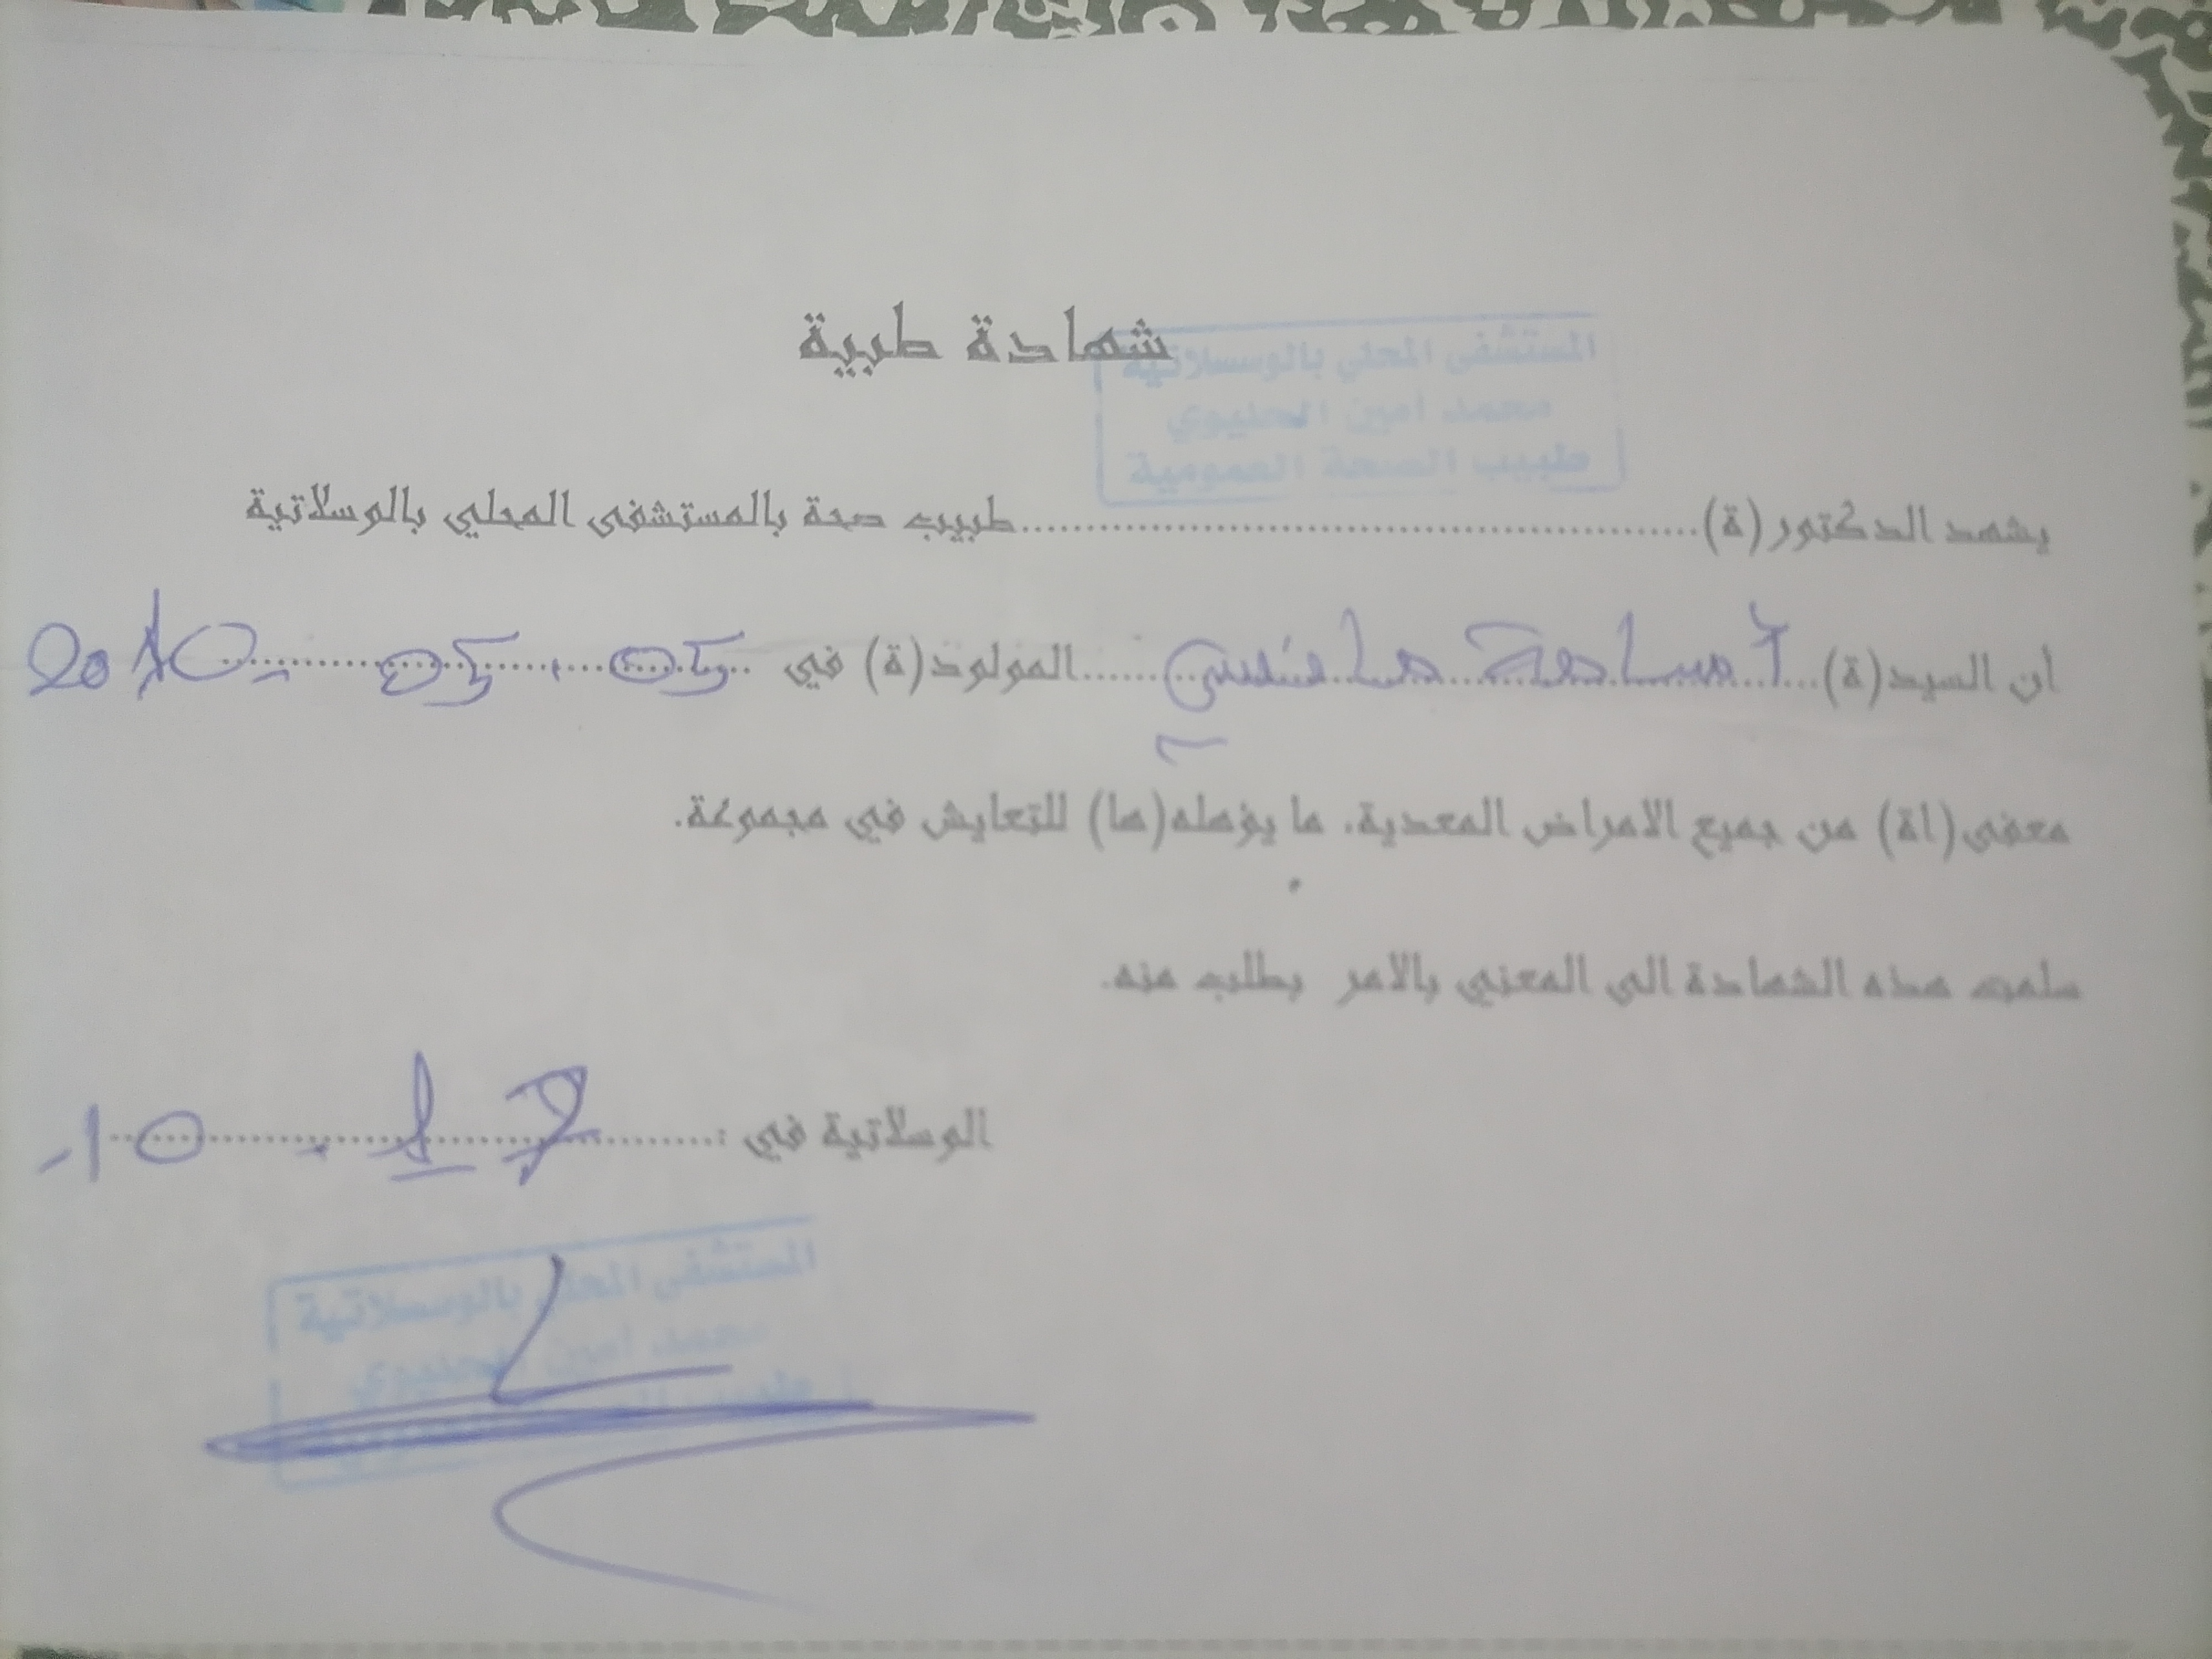 شهادة طبية
المستشفى المحلي بالوسسلاتية
محمد امين الحليوي
طبيب الصحة العمومية
يشهد الدكتور(ة)..........طبيب صحة بالمستشفى المحلي بالوسلاتية
ان السيد(ة)... أسامة ...المولود(ة) في 05 . 05 - 2010
معفى(اة) من جميع الامراض المعدية، ما يؤهله(ها) للتعايش في مجموعة.
سلمت هذه الشهادة الى المعني بالامر بطلب منه.
الوسلاتية في :
المستشفى المحلي بالوسسلاتية
محمد امين الحليوي